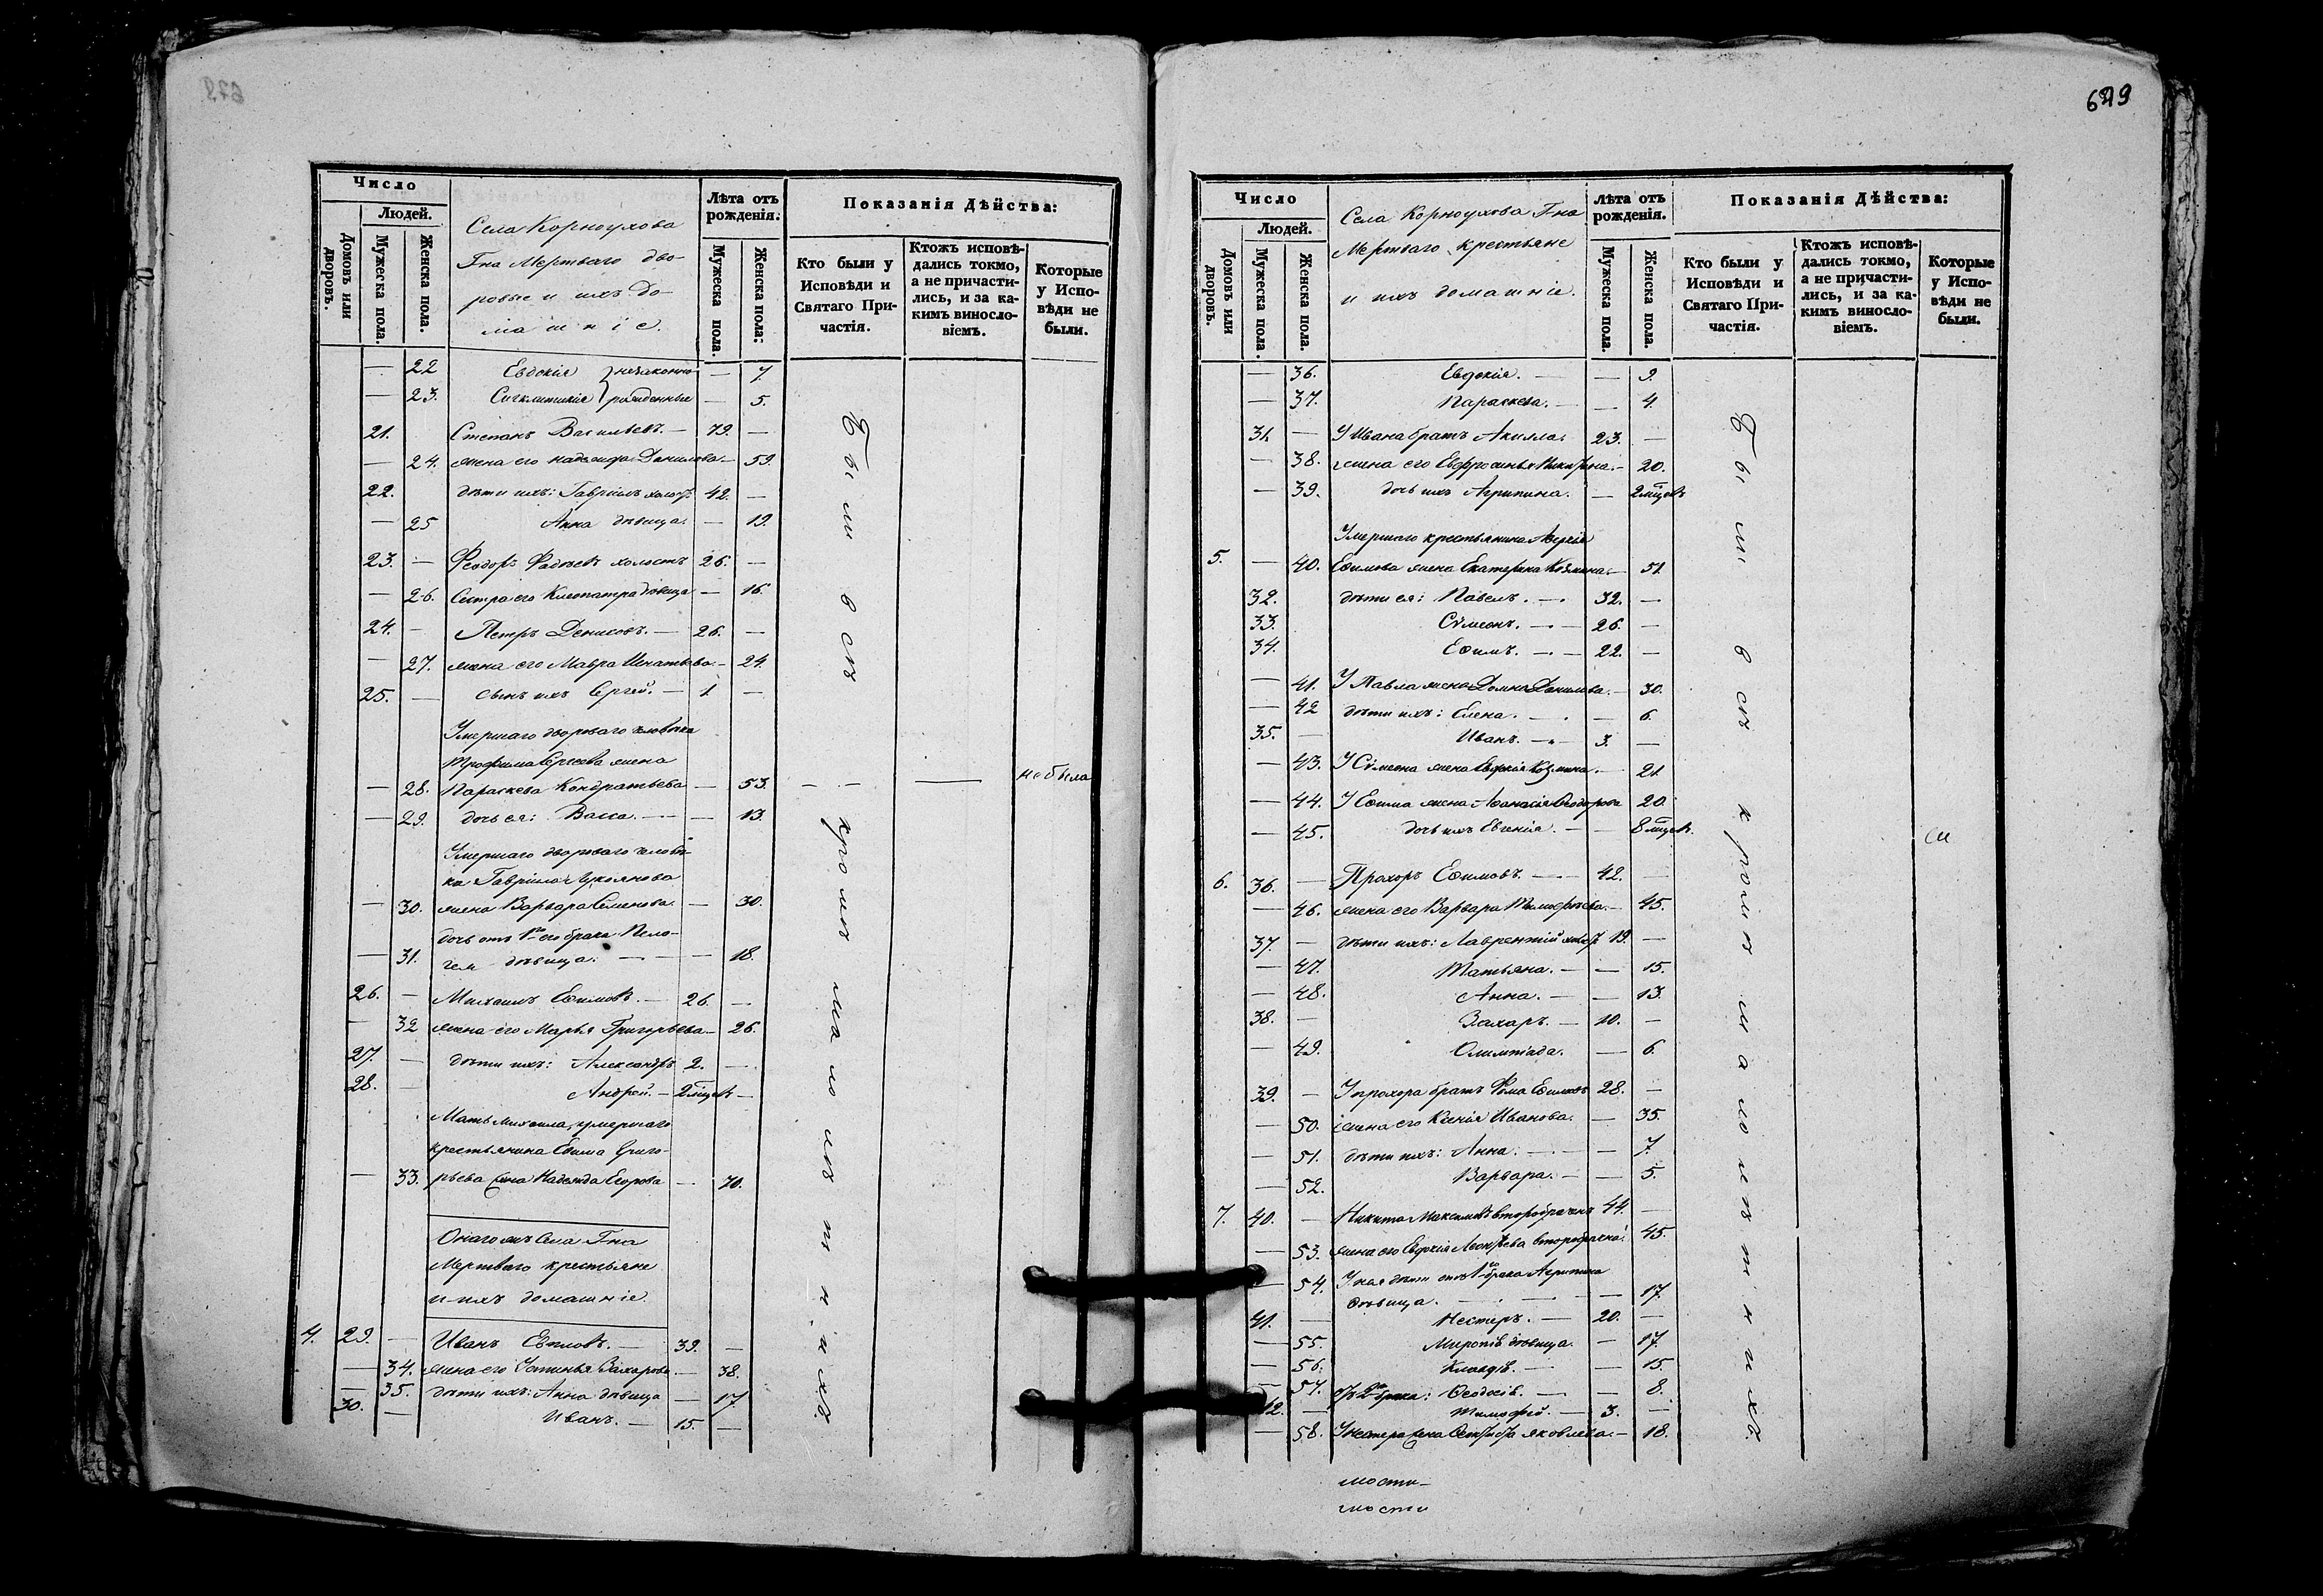 679
Число
Людей.
Домовъ или дворовъ.
Мужеска пола.
Женска пола.
Села Корноухова
Гна Мертваго дво-
ровые и ихъ до-
машніе.
Лѣта отъ рожденія:
Мужеска пола.
Женска пола:
Показанія Дѣйства:
Кто были у Исповѣди и Святаго Причастія.
Ктожъ исповѣдались токмо, а не причастились, и за какимъ винословіемъ.
Которые у Исповѣди не были.
— 22 Евдокія } незаконно — 7.
— 23. Сигклитикія } рожденные — 5.
21. Степанъ Васильевъ. — 79. —
— 24. жена его Надежда Данилова — 59.
22. дѣти ихъ: Гавріилъ холос. 42. —
— 25 Анна дѣвица. — 19.
23. — Феодоръ Фадѣевъ холостъ 26. —
— 26. Сестра его Клеопатра дѣвица — 16.
24. — Петръ Денисовъ. — 26. —
— 27. жена его Мавра Игнатьева. — 24.
25. — сынъ ихъ Сергей. — 1 —
Умершаго двороваго человѣка
Трофима Сергеева жена
— 28. Параскева Кондратьева — 53. — — не была
— 29. дочь ея: Васса. — — 13.
Умершаго двороваго человѣ-
ка Гавріила Лукоянова
— 30. жена Варвара Семенова. — 30.
дочь отъ 1го его брака Пела-
— 31. гея дѣвица. — — 18.
26. — Михаилъ Ефимовъ. — 26. —
— 32 жена его Марья Григорьева — 26.
27. — дѣти ихъ: Александръ 2. —
28. — Андрей. — 2 мцев —
Мать Михаила, умершаго
крестьянина Ефима Григо-
— 33. рьева жена Надежда Егорова — 70.
Онагожъ Села Гна
Мертваго крестьяне
и ихъ домашніе.
4. 29. — Иванъ — 39. —
— 34. жена его Устинья Захарова — 38.
— 35. дѣти ихъ: Анна дѣвица — 17.
30. — Иванъ. — 15. —
Были всѣ кромѣ малолѣтнихъ
679
Число
Людей.
Домовъ или дворовъ.
Мужеска пола.
Женска пола.
Села Корноухова Гна
Мертваго крестьяне
и ихъ домашніе.
Лѣта отъ рожденія.
Мужеска пола.
Женска пола.
Показанія Дѣйства:
Кто были у Исповѣди и Святаго Причастія.
Ктожъ исповѣдались токмо, а не причастились, и за какимъ винословіемъ.
Которые у Исповѣди не были.
— 36. Евдокія. — — 9.
— 37. Параскева. — — 4.
31. — У Ивана братъ Акилла. 23. —
— 38. жена его Евфросинья Никифо. — 20.
— 39. дочь ихъ Агрипина. — 2 мцев
Умершаго крестьянина
5. — 40. Ефимова жена Екатерина Козмина. — 51
32. дѣти ея: Павелъ. — 32. —
33. Сѵмеонъ. — 26. —
34. Ефимъ. — 22. —
— 41. У Павла жена Домна Данилова. — 30.
— 42 дѣти ихъ: Елена. — — 6.
35. — Иванъ. — 3. —
— 43. У Сѵмеона жена Евдокія Козмина. — 21
— 44. У Ефима жена Афанасія Феодорова 20.
— 45. дочь ихъ Евгенія. — — 8 мцев.
6. 36. — Прохоръ Ефимовъ. — 42. —
— 46. жена его Варвара Тимофѣева. — 45.
37. — дѣти ихъ: Лаврентій холос. 19. —
— 47. Татьяна. — — 15.
— 48. Анна. — — 13.
38. — Захаръ. — 10. —
— 49. Олимпіада. — 6.
39. — У Прохора братъ Фома Ефимовъ 28. —
— 50. жена его Ксенія Иванова. — 35.
— 51. дѣти ихъ: Анна: — — 7.
— 52. Варвара. — — 5.
7. 40. — Никита Максимовъ второбрачнъ 44. —
— 53. жена его Евдокія Леонтьева второбрачна: 45.
— 54. У нея дѣти отъ 1го брака Агрипина
дѣвица. — — 17.
41. — Несторъ. — 20. —
— 55. дѣвица. — 17.
— 56. — — 15.
— 57. отъ 2го брака: Феодосія. — — 8.
42. — Тимофей. — 3. —
— 58. У Нестора жена Яковлева. — 18.
Были всѣ кромѣ малолѣтнихъ
мости
мости